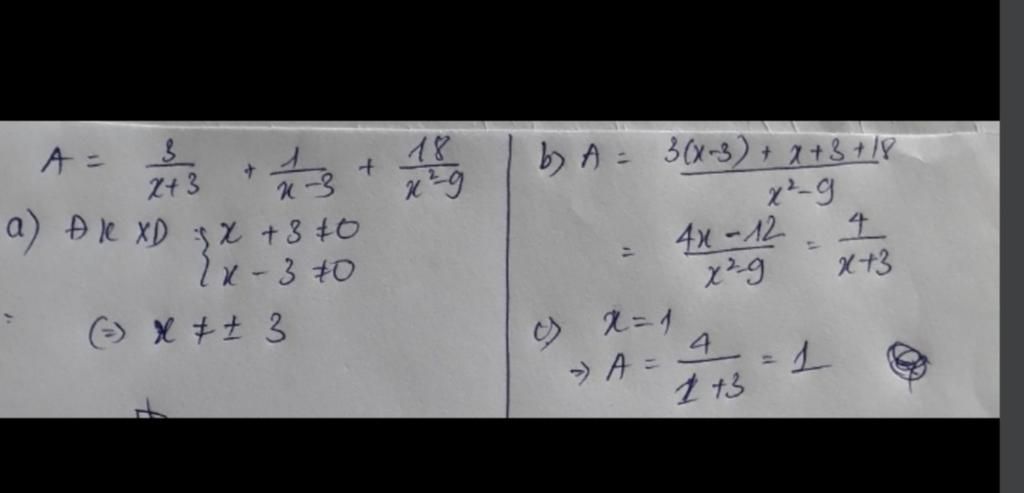 A = 3/(x+3) + 1/(x-3) + 18/(x²-9)
a) ĐKXĐ { x + 3 ≠ 0
{ x - 3 ≠ 0
(=) x ≠ ± 3
b) A = (3(x-3) + x+3+18)/(x²-9)
= (4x-12)/(x²-9) = 4/(x+3)
c) x=1
=> A = 4/(1+3) = 1